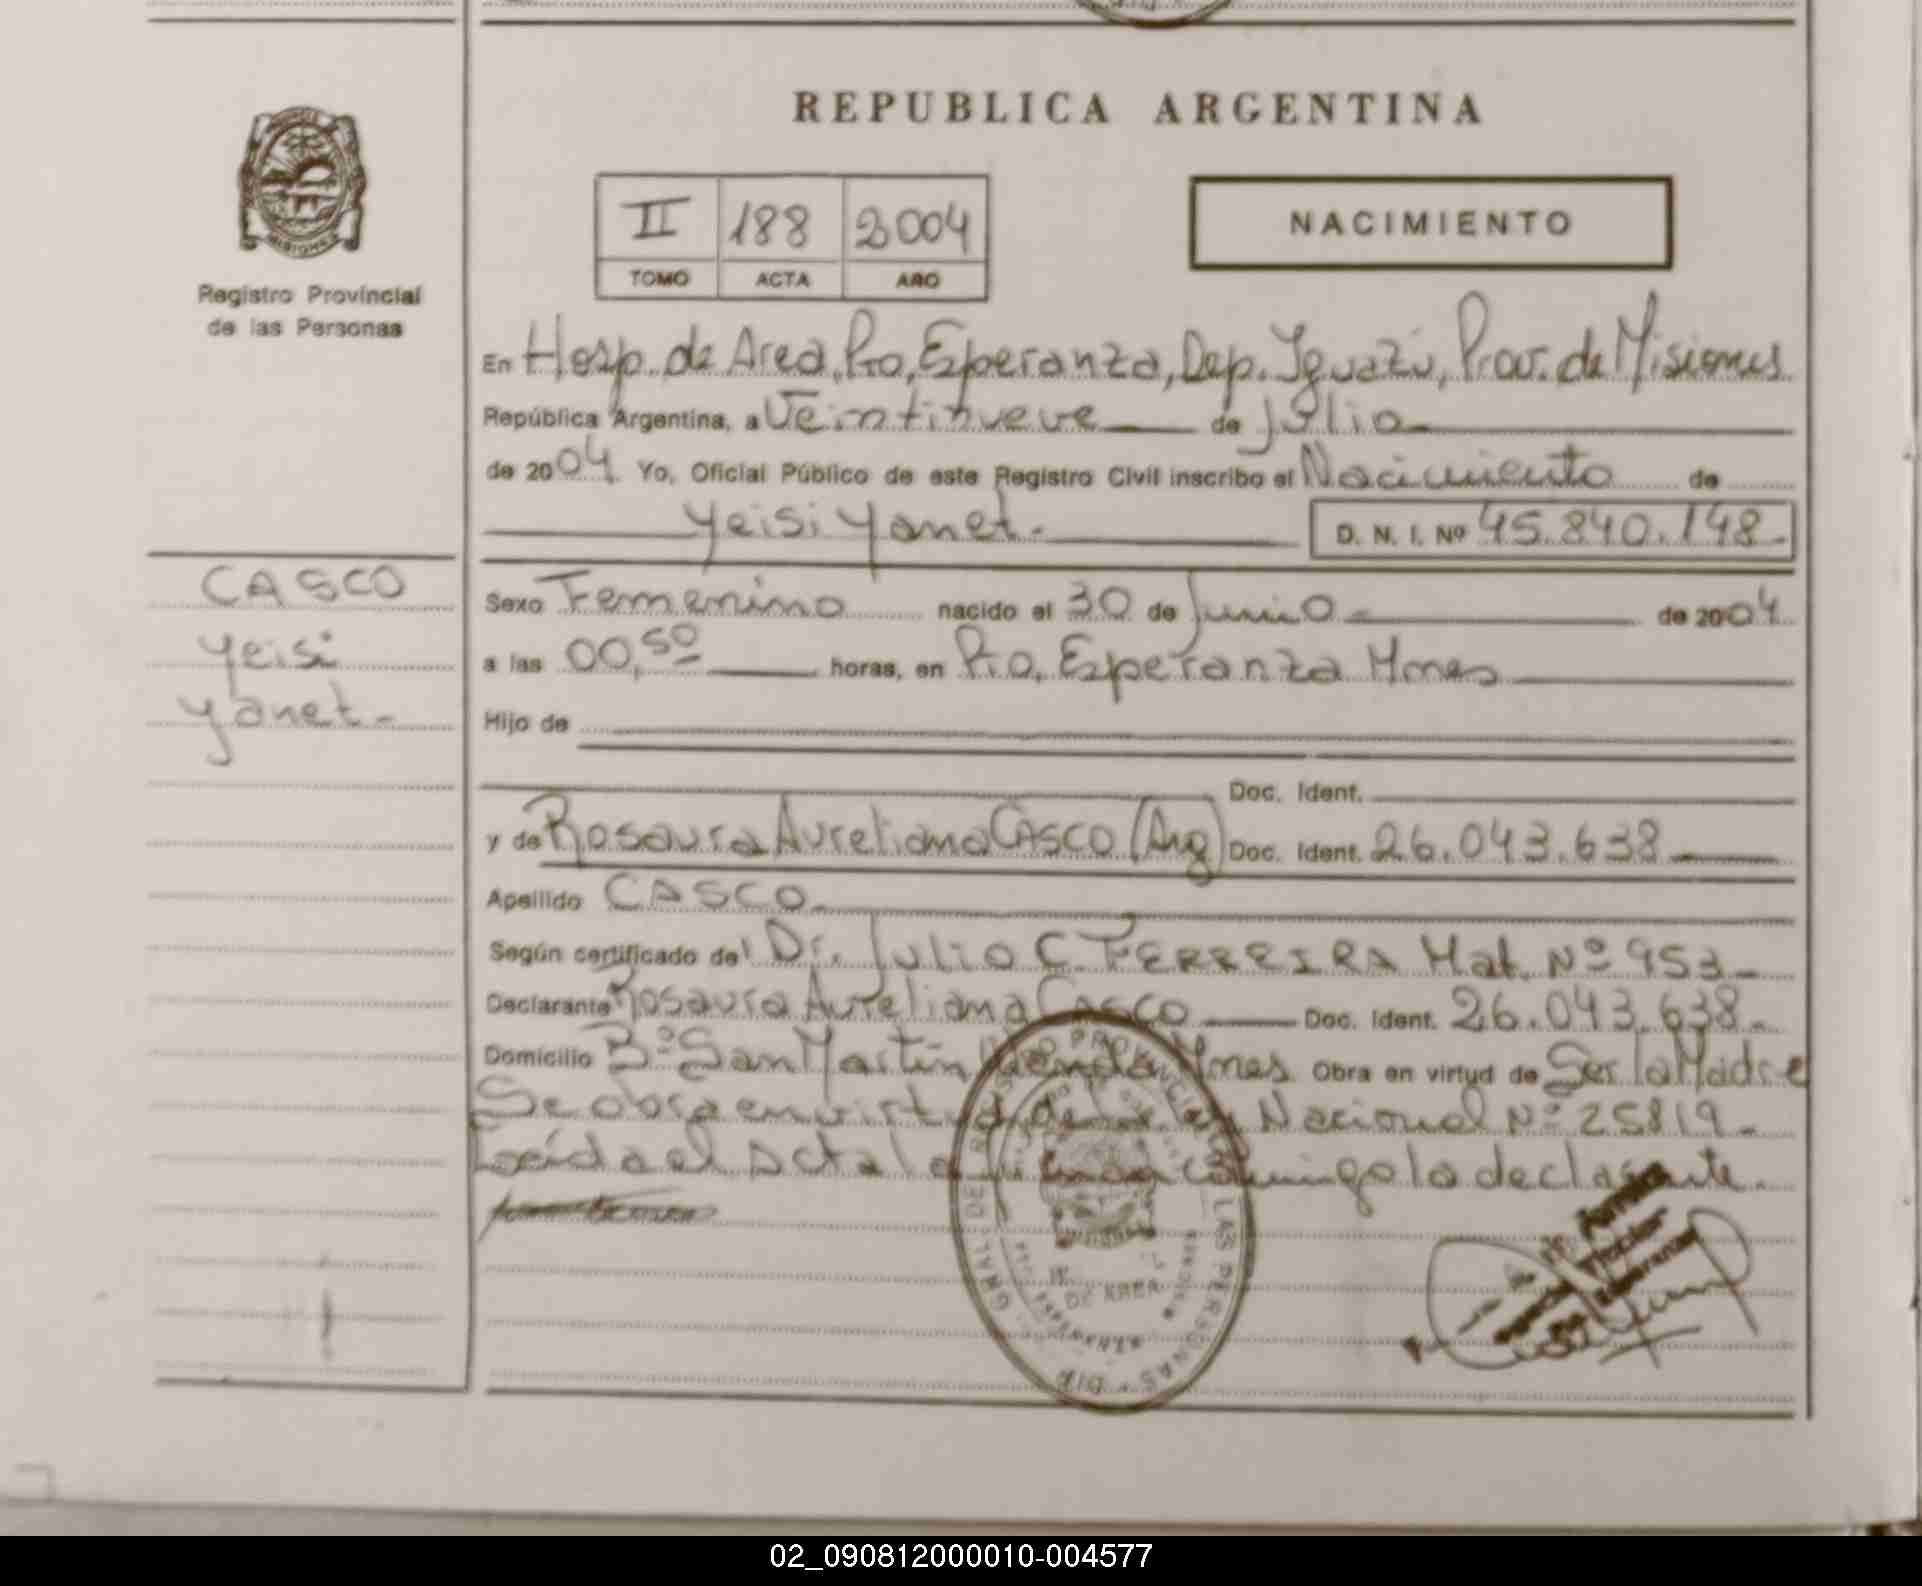 REPUBLICA ARGENTINA
II 188 2004
TOMO ACTA AÑO
NACIMIENTO
MISIONES
Registro Provincial
de las Personas
En Hosp. de Area, Pto, Esperanza, Dep. Iguazú, Prov. de Misiones
República Argentina, a Veintinueve de Julio
de 2004. Yo, Oficial Público de este Registro Civil inscribo el Nacimiento de
Yeisi Yanet.- D. N. I. Nº 45.840.148.-
CASCO
Yeisi
Yanet.-
Sexo Femenino nacido el 30 de Junio.- de 2004
a las 00,50 horas, en Pto, Esperanza Mnes
Hijo de
Doc. Ident.
y de Rosaura Aureliana CASCO (Arg) Doc. Ident. 26.043.638
Apellido CASCO.
Según certificado de Dr. Julio C. FERREIRA Mat. Nº 953.-
Declarante Rosaura Aureliana CASCO Doc. Ident. 26.043.638.-
Domicilio Bº San Martín Mnes Obra en virtud de Ser la Madre
Se obra en virtud de la Ley Nacional Nº 25819.-
Leída el Acta la firman conmigo la declarante.
LAS PERSONAS
DE AREA
02_090812000010-004577